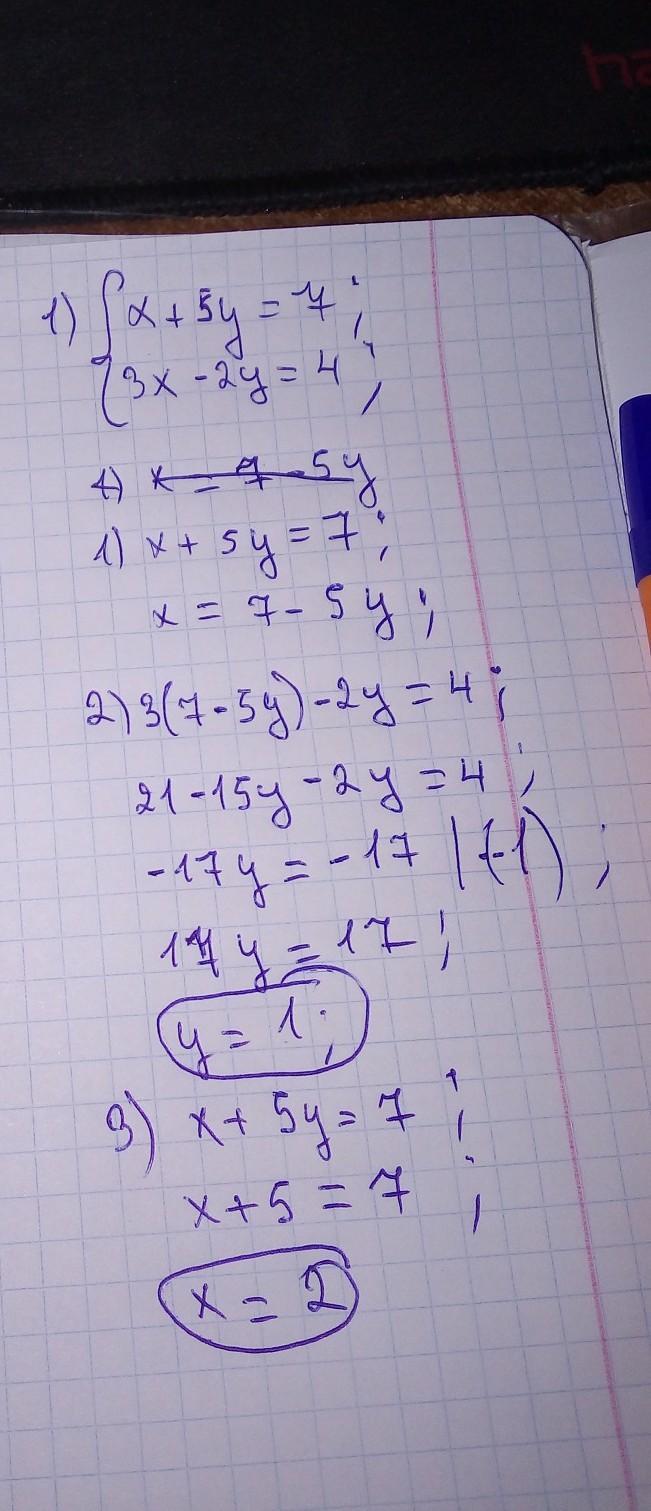 1) { x + 5y = 7 ;
3x - 2y = 4 ;
1) x = 7 - 5y
1) x + 5y = 7 ;
x = 7 - 5y ;
2) 3(7 - 5y) - 2y = 4 ;
21 - 15y - 2y = 4 ;
-17y = -17 | (-1) ;
17y = 17 ;
y = 1 ;
3) x + 5y = 7 ;
x + 5 = 7 ;
x = 2